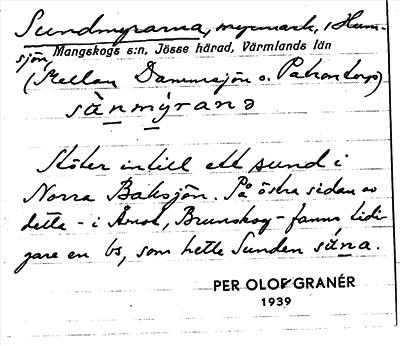 Sundmyrarna, myrmark, i Hum-
sjön, Mangskogs s:n, Jösse härad, Värmlands län
(Mellan Dammsjön o. Pakontorp)
sànmýrană
Stöter intill ett sund i
Norra Baksjön. På östra sidan av
detta - i Årnot, Brunskog - fanns tidi-
gare en bs, som hette Sunden sána.
PER OLOF GRANÉR
1939